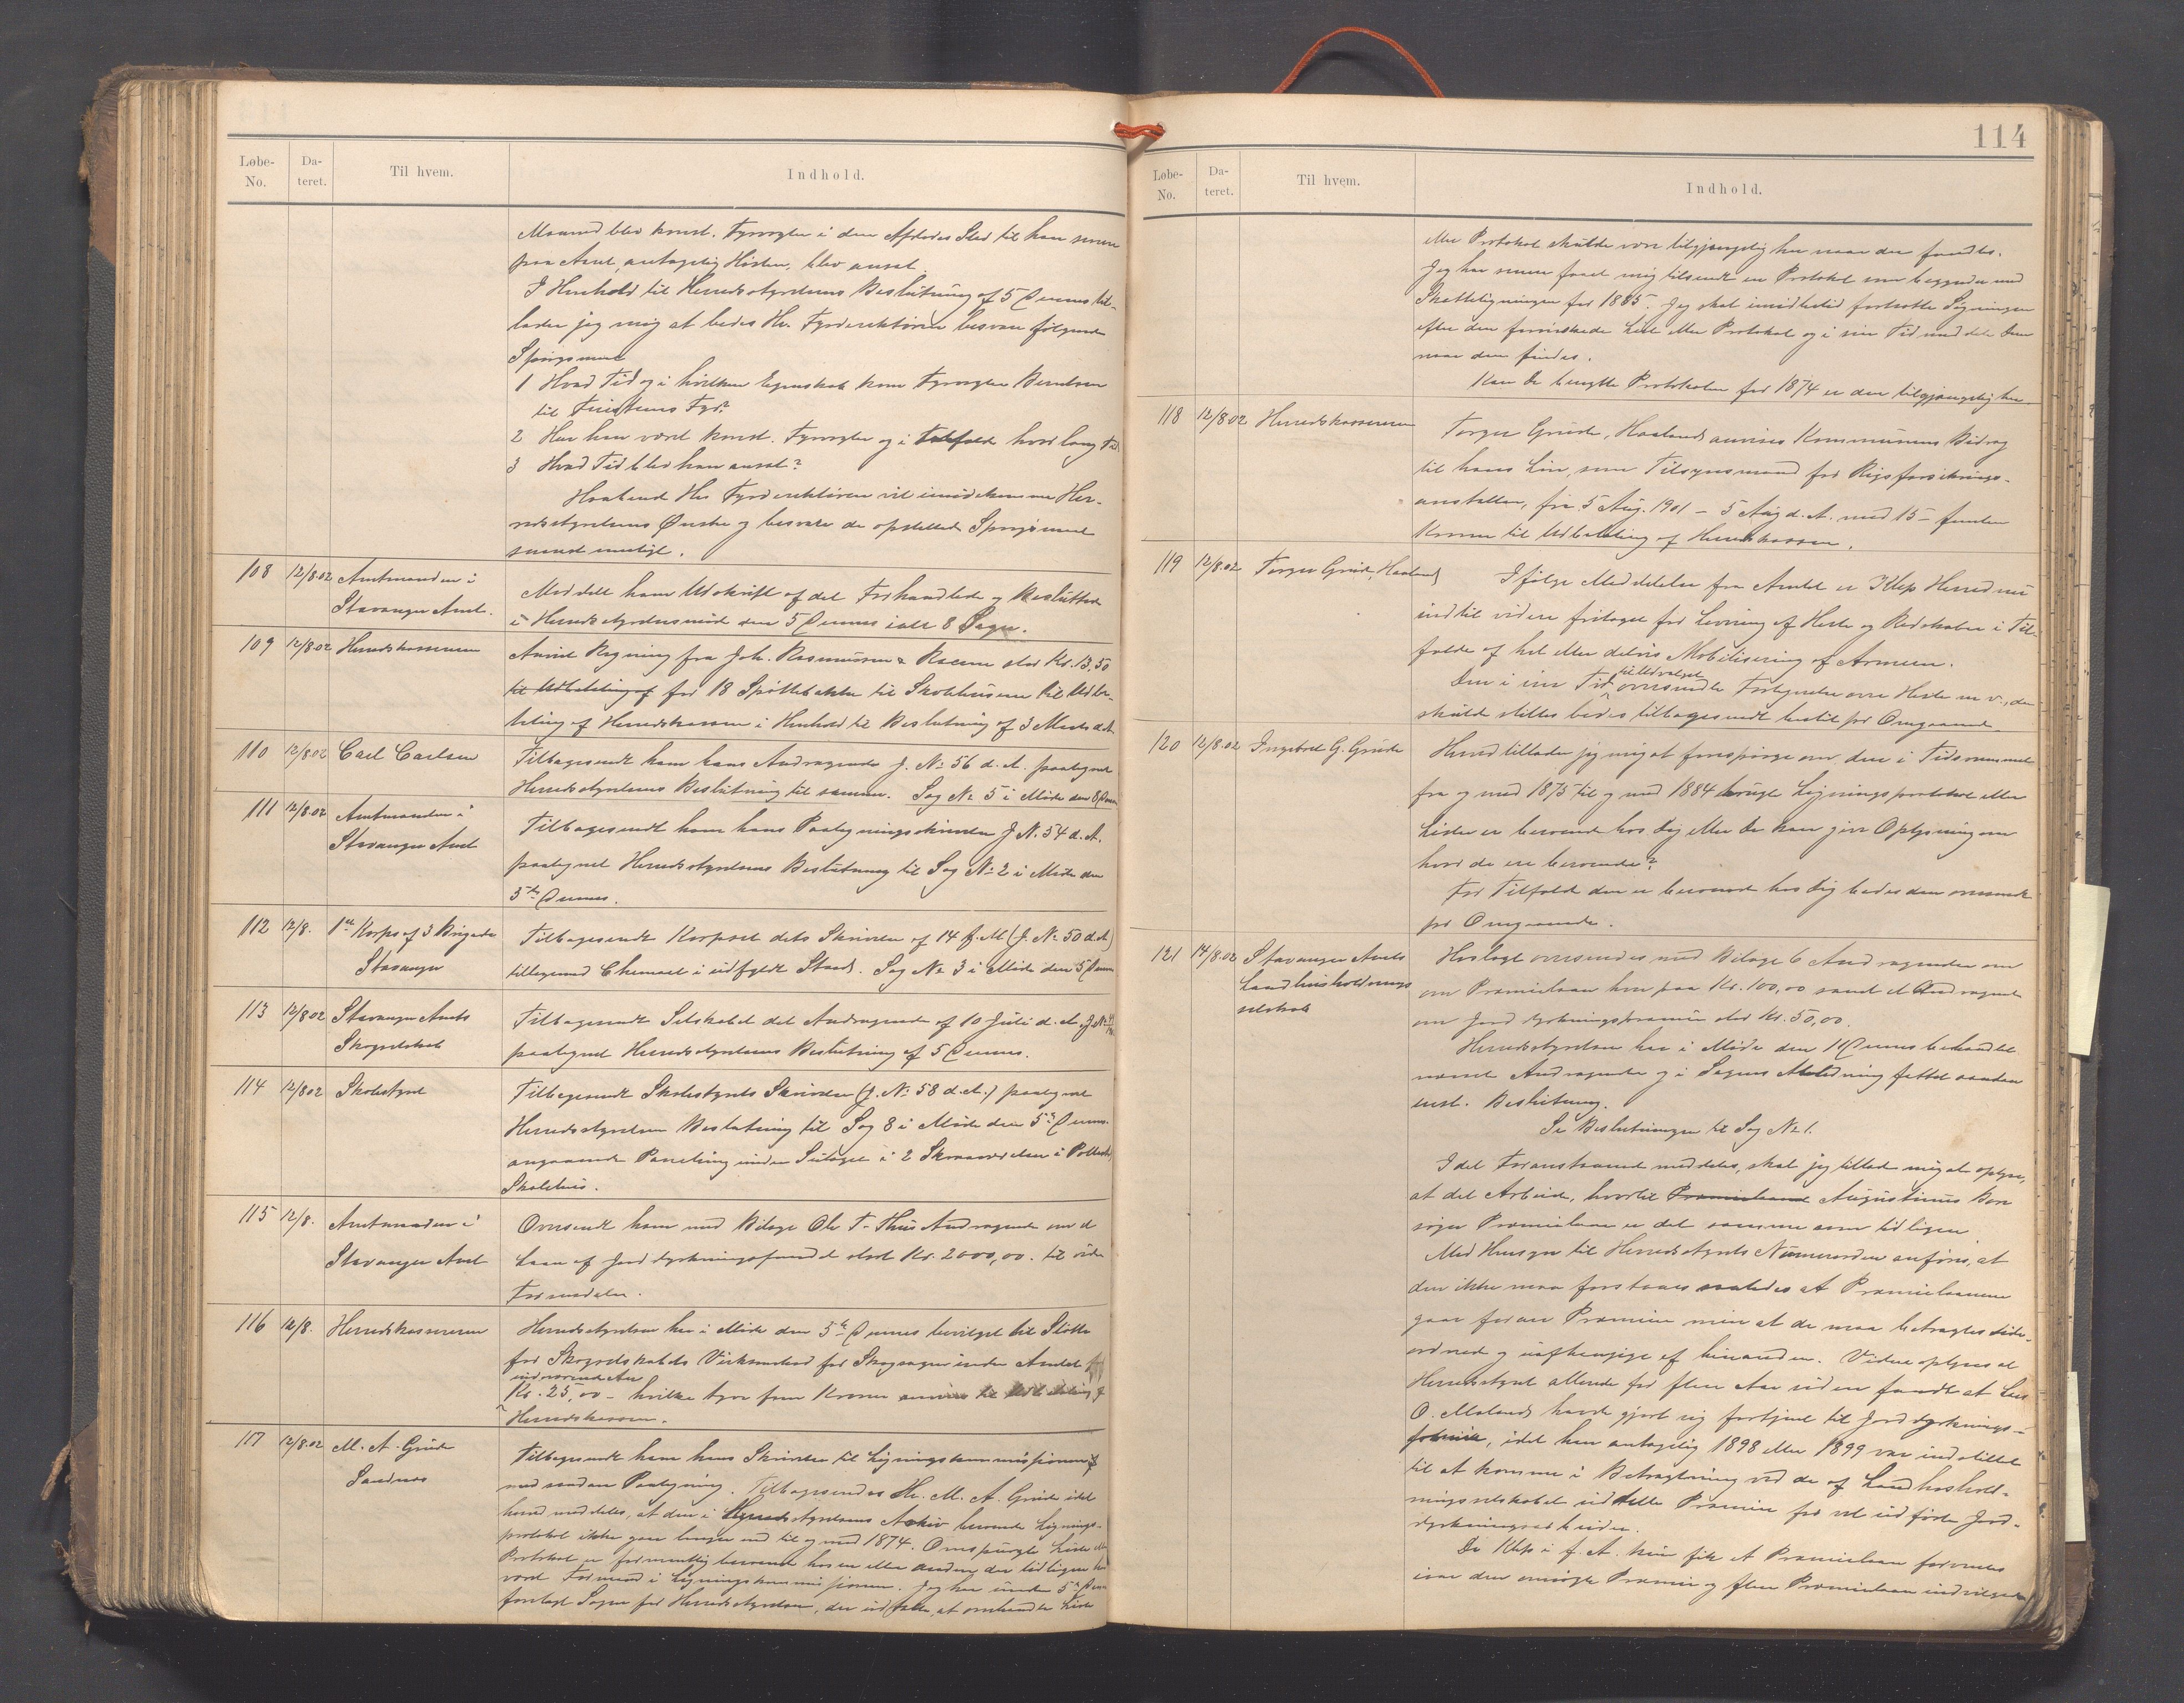 Løbe-No. Da-teret. Til hvem. Indhold.
Maaned blev konst. Fyrvogter i den Afdødes Sted til han senere
paa Aaret, antagelig Høsten, blev ansat.
I Henhold til Herredsstyrelsens Beslutning af 5 Dennes til-
lader jeg mig at bede Hr. Fyrdirektøren besvare følgende
Spørgsmaal
1 Hvad Tid og i hvilken Egenskab kom Fyrvogter Berntsen
til Feistenens Fyr?
2 Har han været konst. Fyrvogter og i Tilfælde hvor lang Tid
3 Hvad Tid blev han ansat?
Haabende Hr. Fyrdirektøren vil imødekomme Her-
redsstyrelsens Ønske og besvare de opstillede Spørgsmaal
snarest muligt.
108 12/8.02 Amtmanden i
Stavanger Amt.
Meddelt ham Udskrift af det Forhandlede og Besluttede
i Herredsstyrelsesmøde den 5 Dennes ialt 8 Sager.
109 12/8.02 Herredskassereren
Anvist Regning fra Joh. Rasmussen & Racine stor Kr. 13,50
til Udbetaling af for 18 Spyttebakker til Skolehusene til Udbe-
taling af Herredskassen i Henhold til Beslutning af 3 Marts d.A.
110 12/8.02 Carl Carlsen
Tilbagesendt ham hans Andragende J. No 56 d. A. paategnet
Herredsstyrelsens Beslutning til samme. Sag No 5 i Møde den 5 Dennes
111 12/8.02 Amtmanden i
Stavanger Amt
Tilbagesendt ham hans Paategningsskrivelse J No 54 d. A.
paategnet Herredsstyrelsens Beslutning til Sag No 2 i Møde den
5te Dennes.
112 12/8. 1ste Korps af 3 Brigade
Stavanger
Tilbagesendt Korpset dets Skrivelse af 14 f. M (J. No 50 d. A)
tilligemed Skemaet i udfyldt Stand. Sag No 3 i Møde den 5 Dennes
113 12/8 02 Stavanger Amts
Skogselskab
Tilbagesendt Selskabet det Andragende af 10 Juli d. A.
paategnet Herredsstyrelsens Beslutning af 5 Dennes.
114 12/8 02 Skolestyret
Tilbagesendt Skolestyrets Skrivelse (J. No 58 d. A.) paategnet
Herredsstyrelsens Beslutning til Sag 8 i Møde den 5te Dennes
angaaende Paneling under i 2 Skoleværelser i
Skolehus.
115 12/8. Amtmanden i
Stavanger Amt
Oversendt ham med Bilage Ole T. Thus Andragende om et
Laan af Jorddyrkningsfondet stort Kr. 2000,00. til videre
Formedelse.
116 12/8. Herredskassereren
Herredsstyrelsen har i Møde den 5te Dennes bevilget til Støtte
for Skogselskabets Virksomhed for Skogsagen inden Amtet
indeværende Aar
Kr. 25,00 – hvilke tyve fem Kroner anvises til Udbetaling af
Herredskassen.
117 12/8.02 M. A. Grude
Sandnes
Tilbagesendt ham hans Skrivelse til Ligningskommissionen
med saadan Paategning. Tilbagesendes Hr. M. A. Grude idet
herved meddeles, at den i Herredsstyrelsens Arkiv beroende Lignings-
protokol ikke gaar længer end til og med 1874. Omspurgte Liste eller
Protokol er formentlig beroende hos en eller anden der tidligere har
været Formand i Ligningskommissionen. Jeg har under 5te Dennes
forelagt Sagen for Herredsstyrelsen, der udtalte, at omhandlede Liste
114
Løbe-No. Da-teret. Til hvem. Indhold.
eller Protokol skulde være tilgjængelig her naar den fandtes.
Jeg har senere faaet mig tilsendt en Protokol som begynder med
Skatteligningen for 1885. Jeg skal imidlertid fortsætte Søgningen
efter den forønskede Liste eller Protokol og i sin Tid meddele Dem
naar den findes.
Kan De benytte Protokolen for 1874 er den tilgjængelig her.
118 12/8 02 Herredskassereren
Torger Grude, Haaland anvises Kommunens Bidrag
til hans Løn, som Tilsynsmand for Rigsforsikrings-
anstalten, fra 5 Aug. 1901 – 5 Aug d. A. med 15 – femten
Kroner til Udbetaling af Herredskassen.
119 12/8.02 Torger Grude, Haaland
Ifølge Meddelelse fra Amtet er Klep Herred nu
indtil videre fritaget for Levering af Heste og Redskaber i Til-
fælde af hel eller delvis Mobilisering af Armeen.
Den i sin Tid tilUdvalget oversendte Fortegnelse over Heste m. v., der
skulde stilles bedes tilbagesendt hertil pr Omgaaende.
120 12/8.02 Ingebret G. Grude
Herved tillader jeg mig at forespørge om den i Tidsrummet
fra og med 1875 til og med 1884 brugte Ligningsprotokol eller
Lister er beroende hos Dig eller De kan give Oplysning om
hvor de ere beroende?
For Tilfælde den er beroende hos Dig bedes den oversendt
pr Omgaaende.
121 14/8.02 Stavanger Amts
Landhusholdnings
selskab
Hoslagt oversendes med Bilage 6 Andragender om
om Præmielaan hver paa Kr. 100,00 samt et Andragende
om Jorddyrkningspræmie stor Kr. 50,00.
Herredsstyrelsen har i Møde den 11 Dennes behandlet
nævnte Andragender og i Sagens Anledning fattet saadan
enst. Beslutning.
Se Beslutningen til Sag No 1.
Idet Foranstaaende meddeles, skal jeg tillade mig at oplyse,
at det Arbeide, hvortil Præmielaanet Augustinus Bore
søger Præmielaan er det samme som tidligere.
Med Hensyn til Herredsstyrets Nummerorden anføres, at
den ikke maa forstaaes saaledes at Præmielaanene
gaar foran Præmien men at de maa betragtes side-
ordnede og uafhængige af hinanden. Videre oplyses at
Herredsstyret allerede for flere Aar siden fandt at Lars
O. Maland havde gjort sig fortjent til Jorddyrknings-
præmie, idet han antagelig 1898 eller 1899 var indstillet
til at komme i Betragtning ved de af Landhushold-
ningsselskabet uddelte Præmier for vel udførte Jord-
dyrkningsarbeider.
Da Klep i f. A. kun fik et Præmielaan forventes
især den ansøgte Præmie og flere Præmielaan indvilget